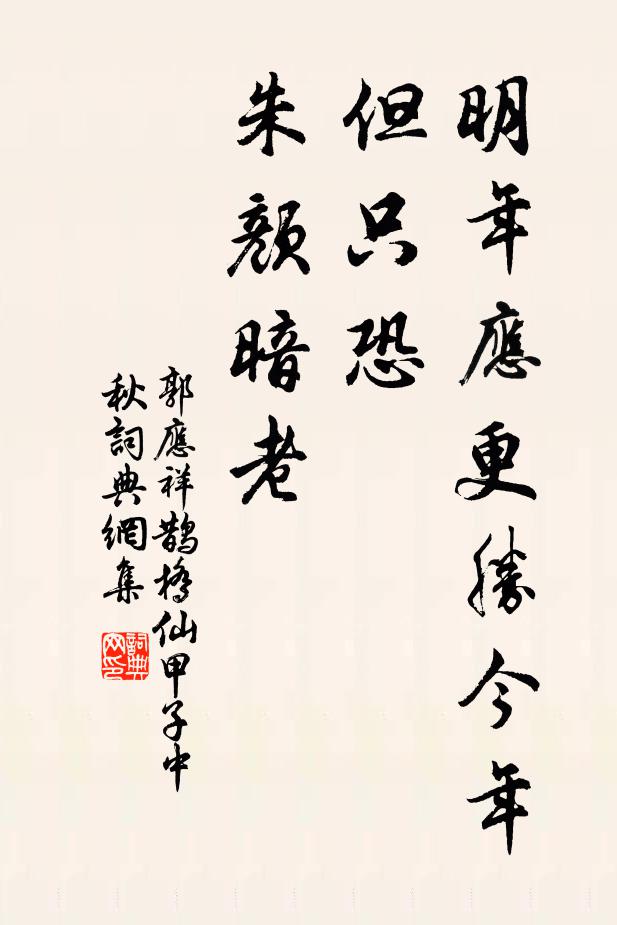 明年應更勝今年
但只恐
朱顏暗老
郭應祥鵲橋仙甲子中
秋詞典網集
詞典
网印